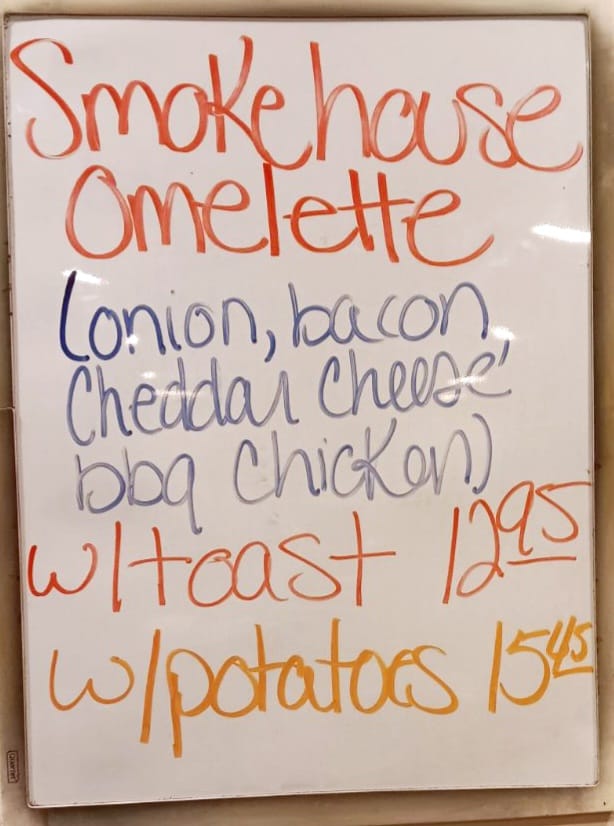 Smokehouse
Omelette
(onion, bacon,
Cheddar Cheese
bbq Chicken)
w/toast 12.95
w/potatoes 15.45
QUARTET